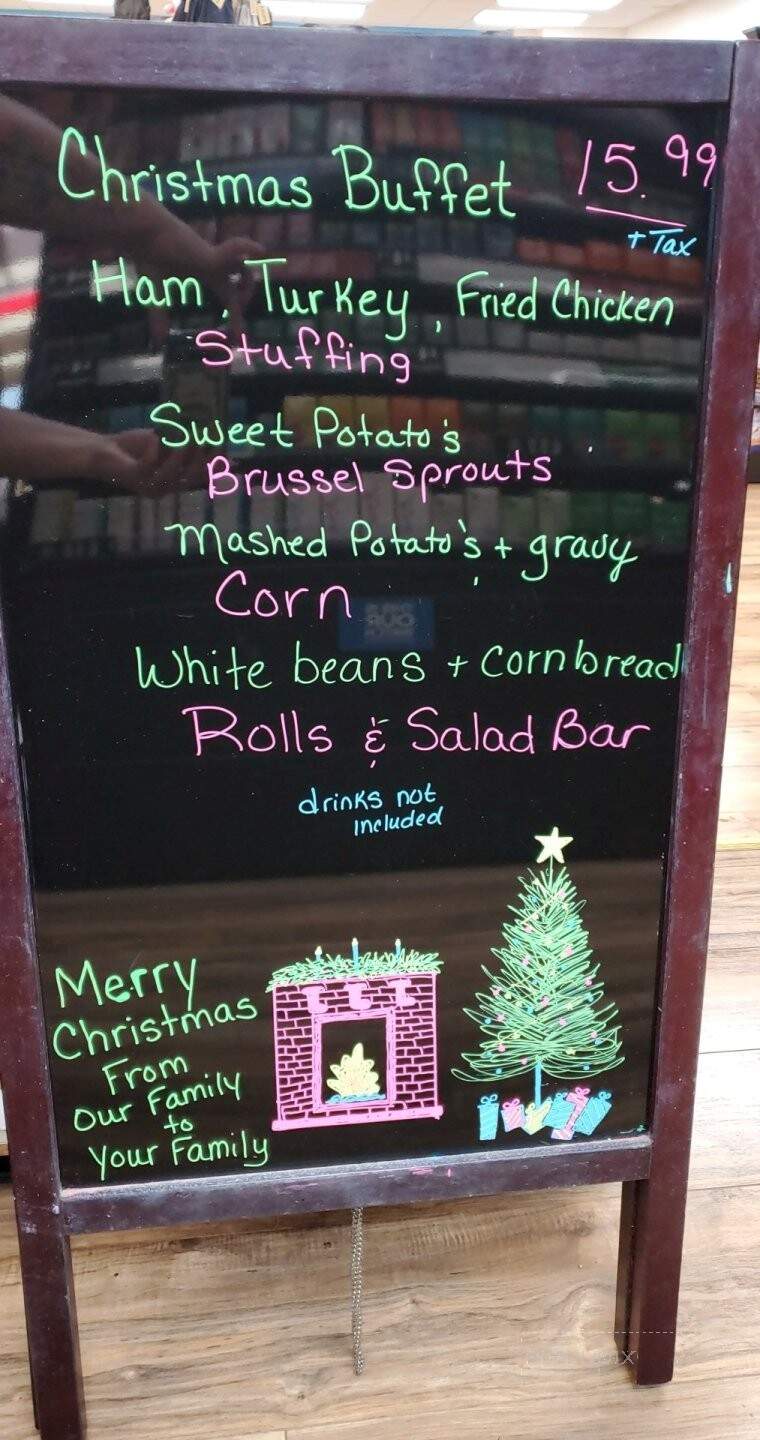 Christmas Buffet 15.99
+ Tax
Ham, Turkey, Fried Chicken
Stuffing
Sweet Potato's
Brussel Sprouts
Mashed Potato's + gravy
Corn
White beans + Cornbread
Rolls & Salad Bar
drinks not
included
Merry
Christmas
From
our Family
to
Your Family